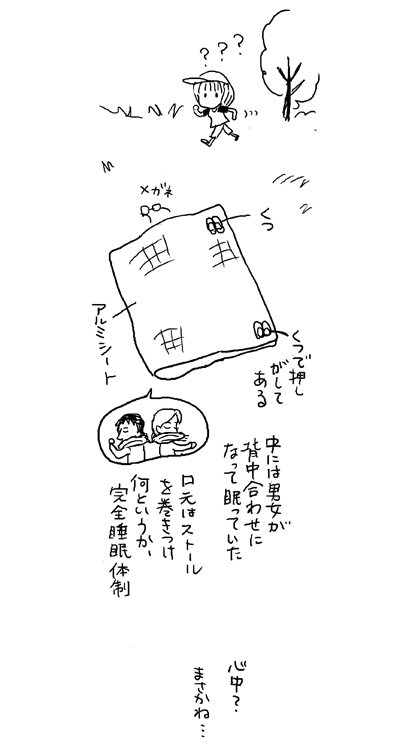 ? ? ?
メガネ
くつ
アルミシート
くつで押し
がして
ある
中には男女が
背中合わせに
なって眠っていた
口元はストール
を巻きつけ
何というか、
完全睡眠体制
心中?
まさかね…